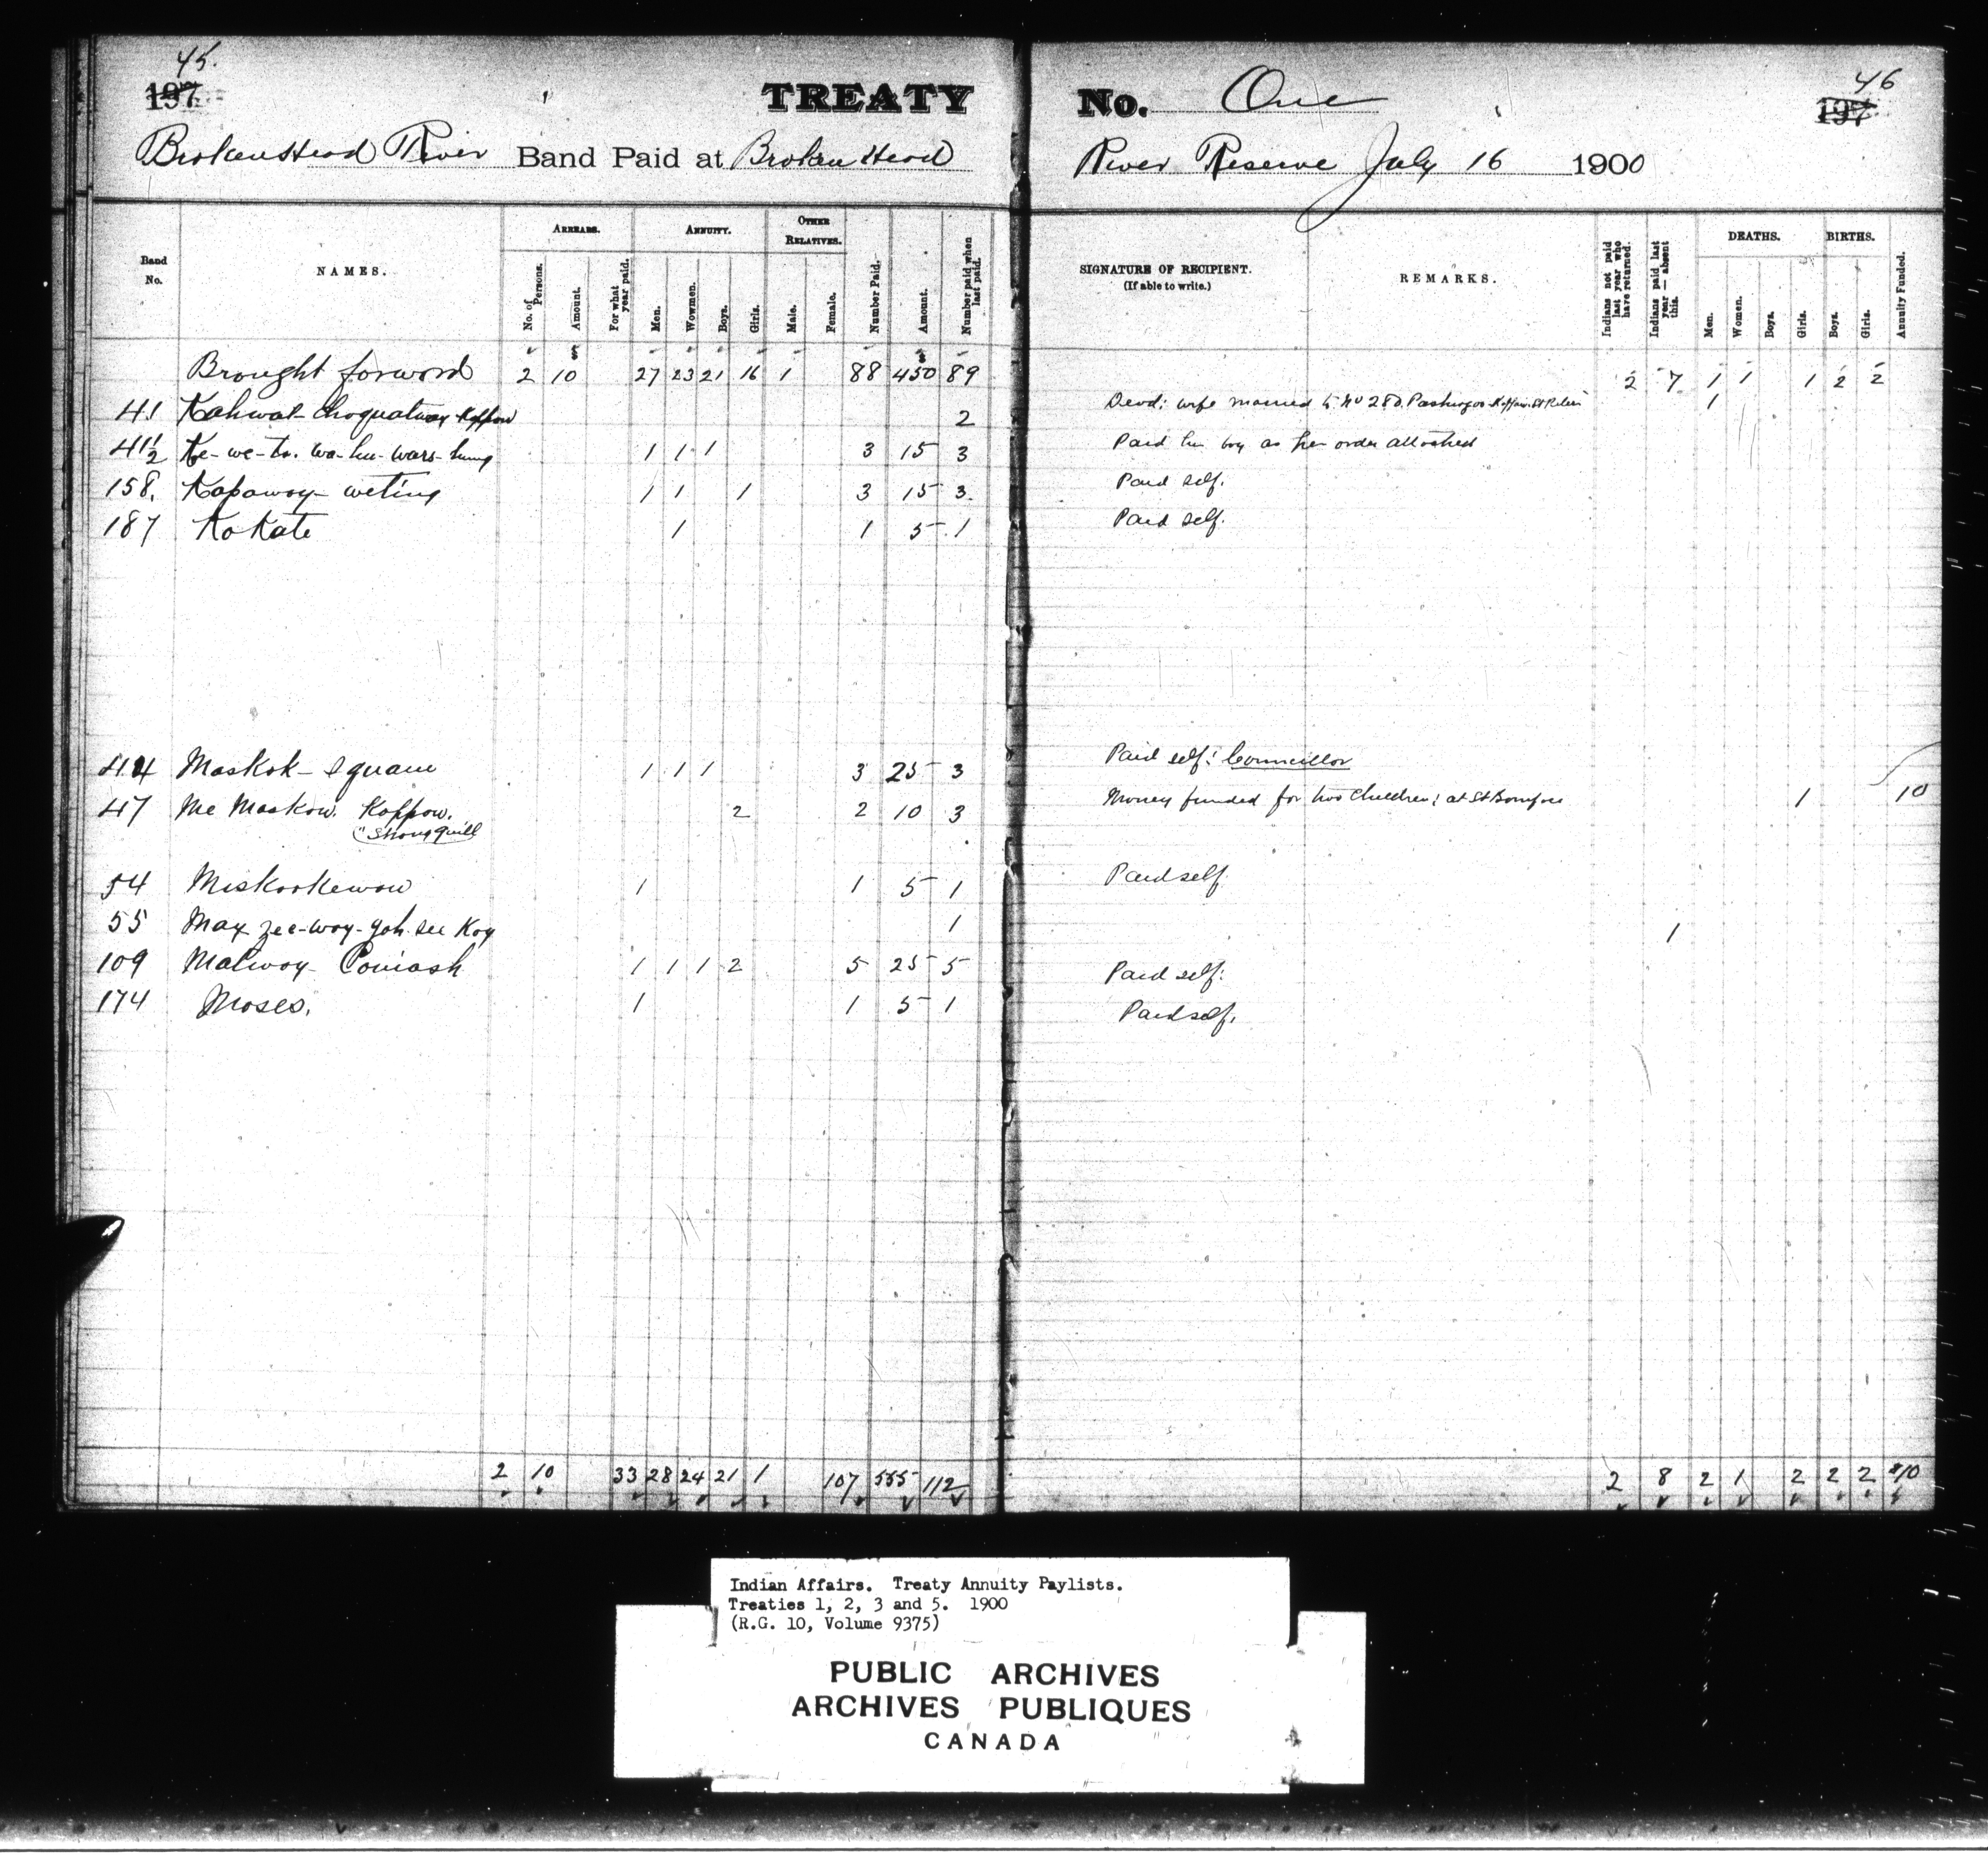 45.
197
TREATY No. One
46
197
BrokenHead River Band Paid at Broken Head River Reserve July 16 1900
Band No.
NAMES.
ARREARS.
No. of Persons.
Amount.
For what year paid.
ANNUITY.
Men.
Wowmen.
Boys.
Girls.
OTHER RELATIVES.
Male.
Female.
Number Paid.
Amount.
Number paid when last paid.
SIGNATURE OF RECIPIENT.
(If able to write.)
REMARKS.
Indians not paid last year who have returned.
Indians paid last year — absent this.
DEATHS.
Men.
Women.
Boys.
Girls.
BIRTHS.
Boys.
Girls.
Annuity Funded.
Brought forward 2 10 27 23 21 16 1 88 450 89 2 7 1 1 1 2 2
41 Kahwat-choquatway Kappow 2 Dead: wife married to No 280. 1
41½ Ke-we-ta. wa-hu-wars-hung 1 1 1 3 15 3 Paid her boy as per order attached
158. Kapaway-weting 1 1 1 3 15 3. Paid self.
187 KoKate 1 1 5 1 Paid self.
44 Maskok-equam 1 1 1 3 25 3 Paid self: Councillor
47 Me Maskow. Kappow. 2 2 10 3 Money funded for two children: at St Boniface 1 10
"Strong quill
54 Miskookewow 1 1 5 1 Paid self
55 May zee-way-gah-see Kay 1 1
109 Matwoy-Comash 1 1 1 2 5 25 5 Paid self:
174 Moses. 1 1 5 1 Paid self.
2 10 33 28 24 21 1 107 555 112 2 8 2 1 2 2 2 $10
Indian Affairs. Treaty Annuity Paylists.
Treaties 1, 2, 3 and 5. 1900
(R.G. 10, Volume 9375)
PUBLIC ARCHIVES
ARCHIVES PUBLIQUES
CANADA